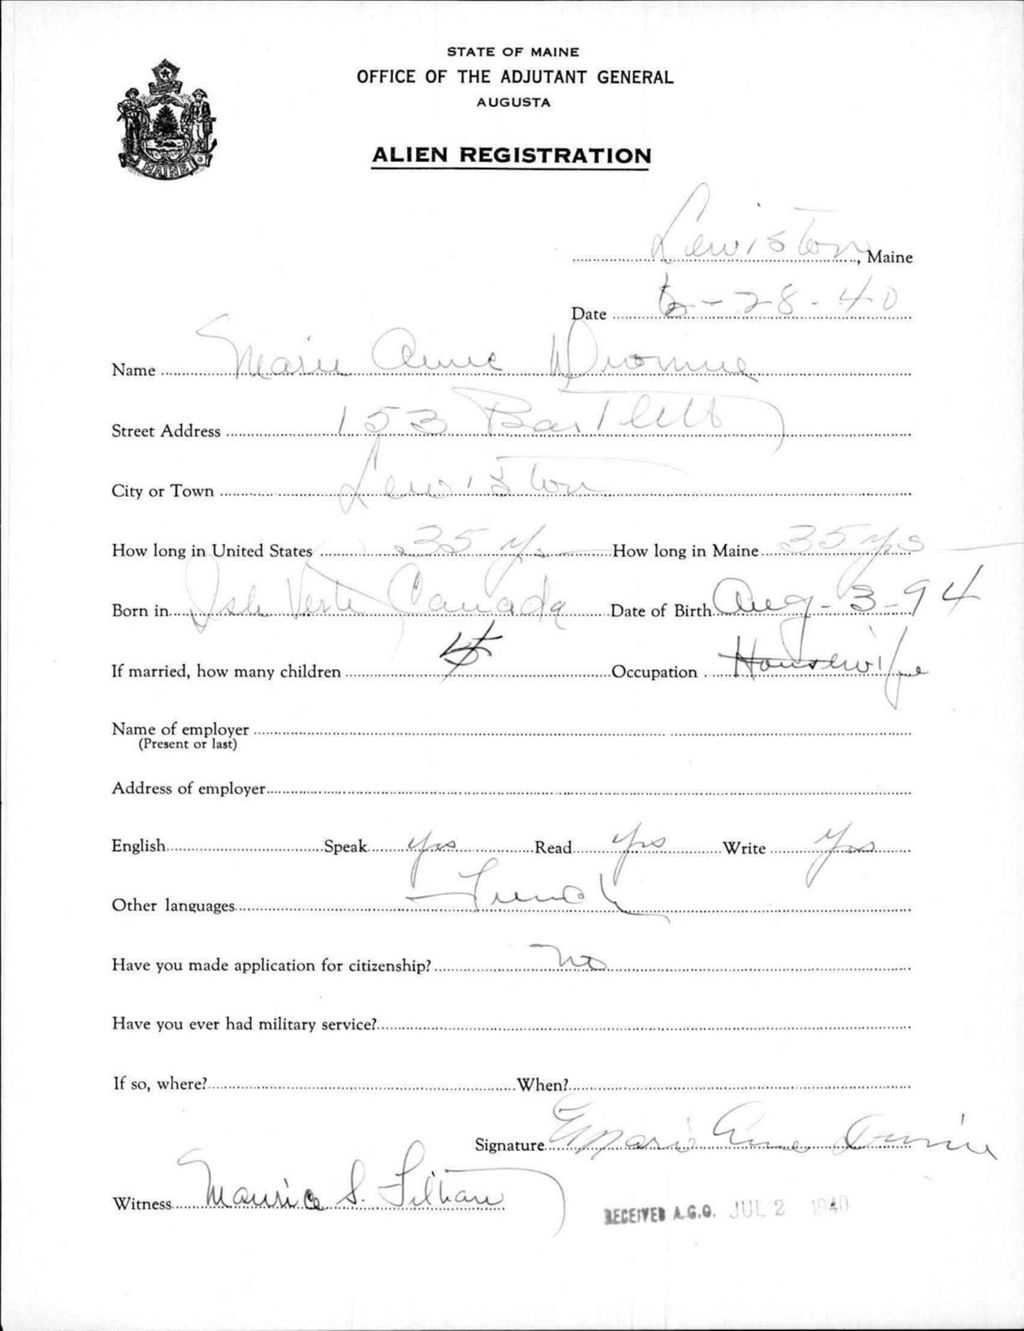 STATE OF MAINE
OFFICE OF THE ADJUTANT GENERAL
AUGUSTA
ALIEN REGISTRATION
MAINE
Lewiston, Maine
Date 6-28-40
Name Marie Anne
Street Address 153 Bartlett
City or Town Lewiston
How long in United States 35 yrs How long in Maine 35 yrs
Born in Isle Verte Canada Date of Birth Aug-3-94
If married, how many children Occupation Housewife
Name of employer
(Present or last)
Address of employer
English Speak yes Read yes Write yes
Other languages French
Have you made application for citizenship? no
Have you ever had military service?
If so, where? When?
Signature Marie Anne
Witness Maurice S.
RECEIVED A.G.O. JUL 2 1940